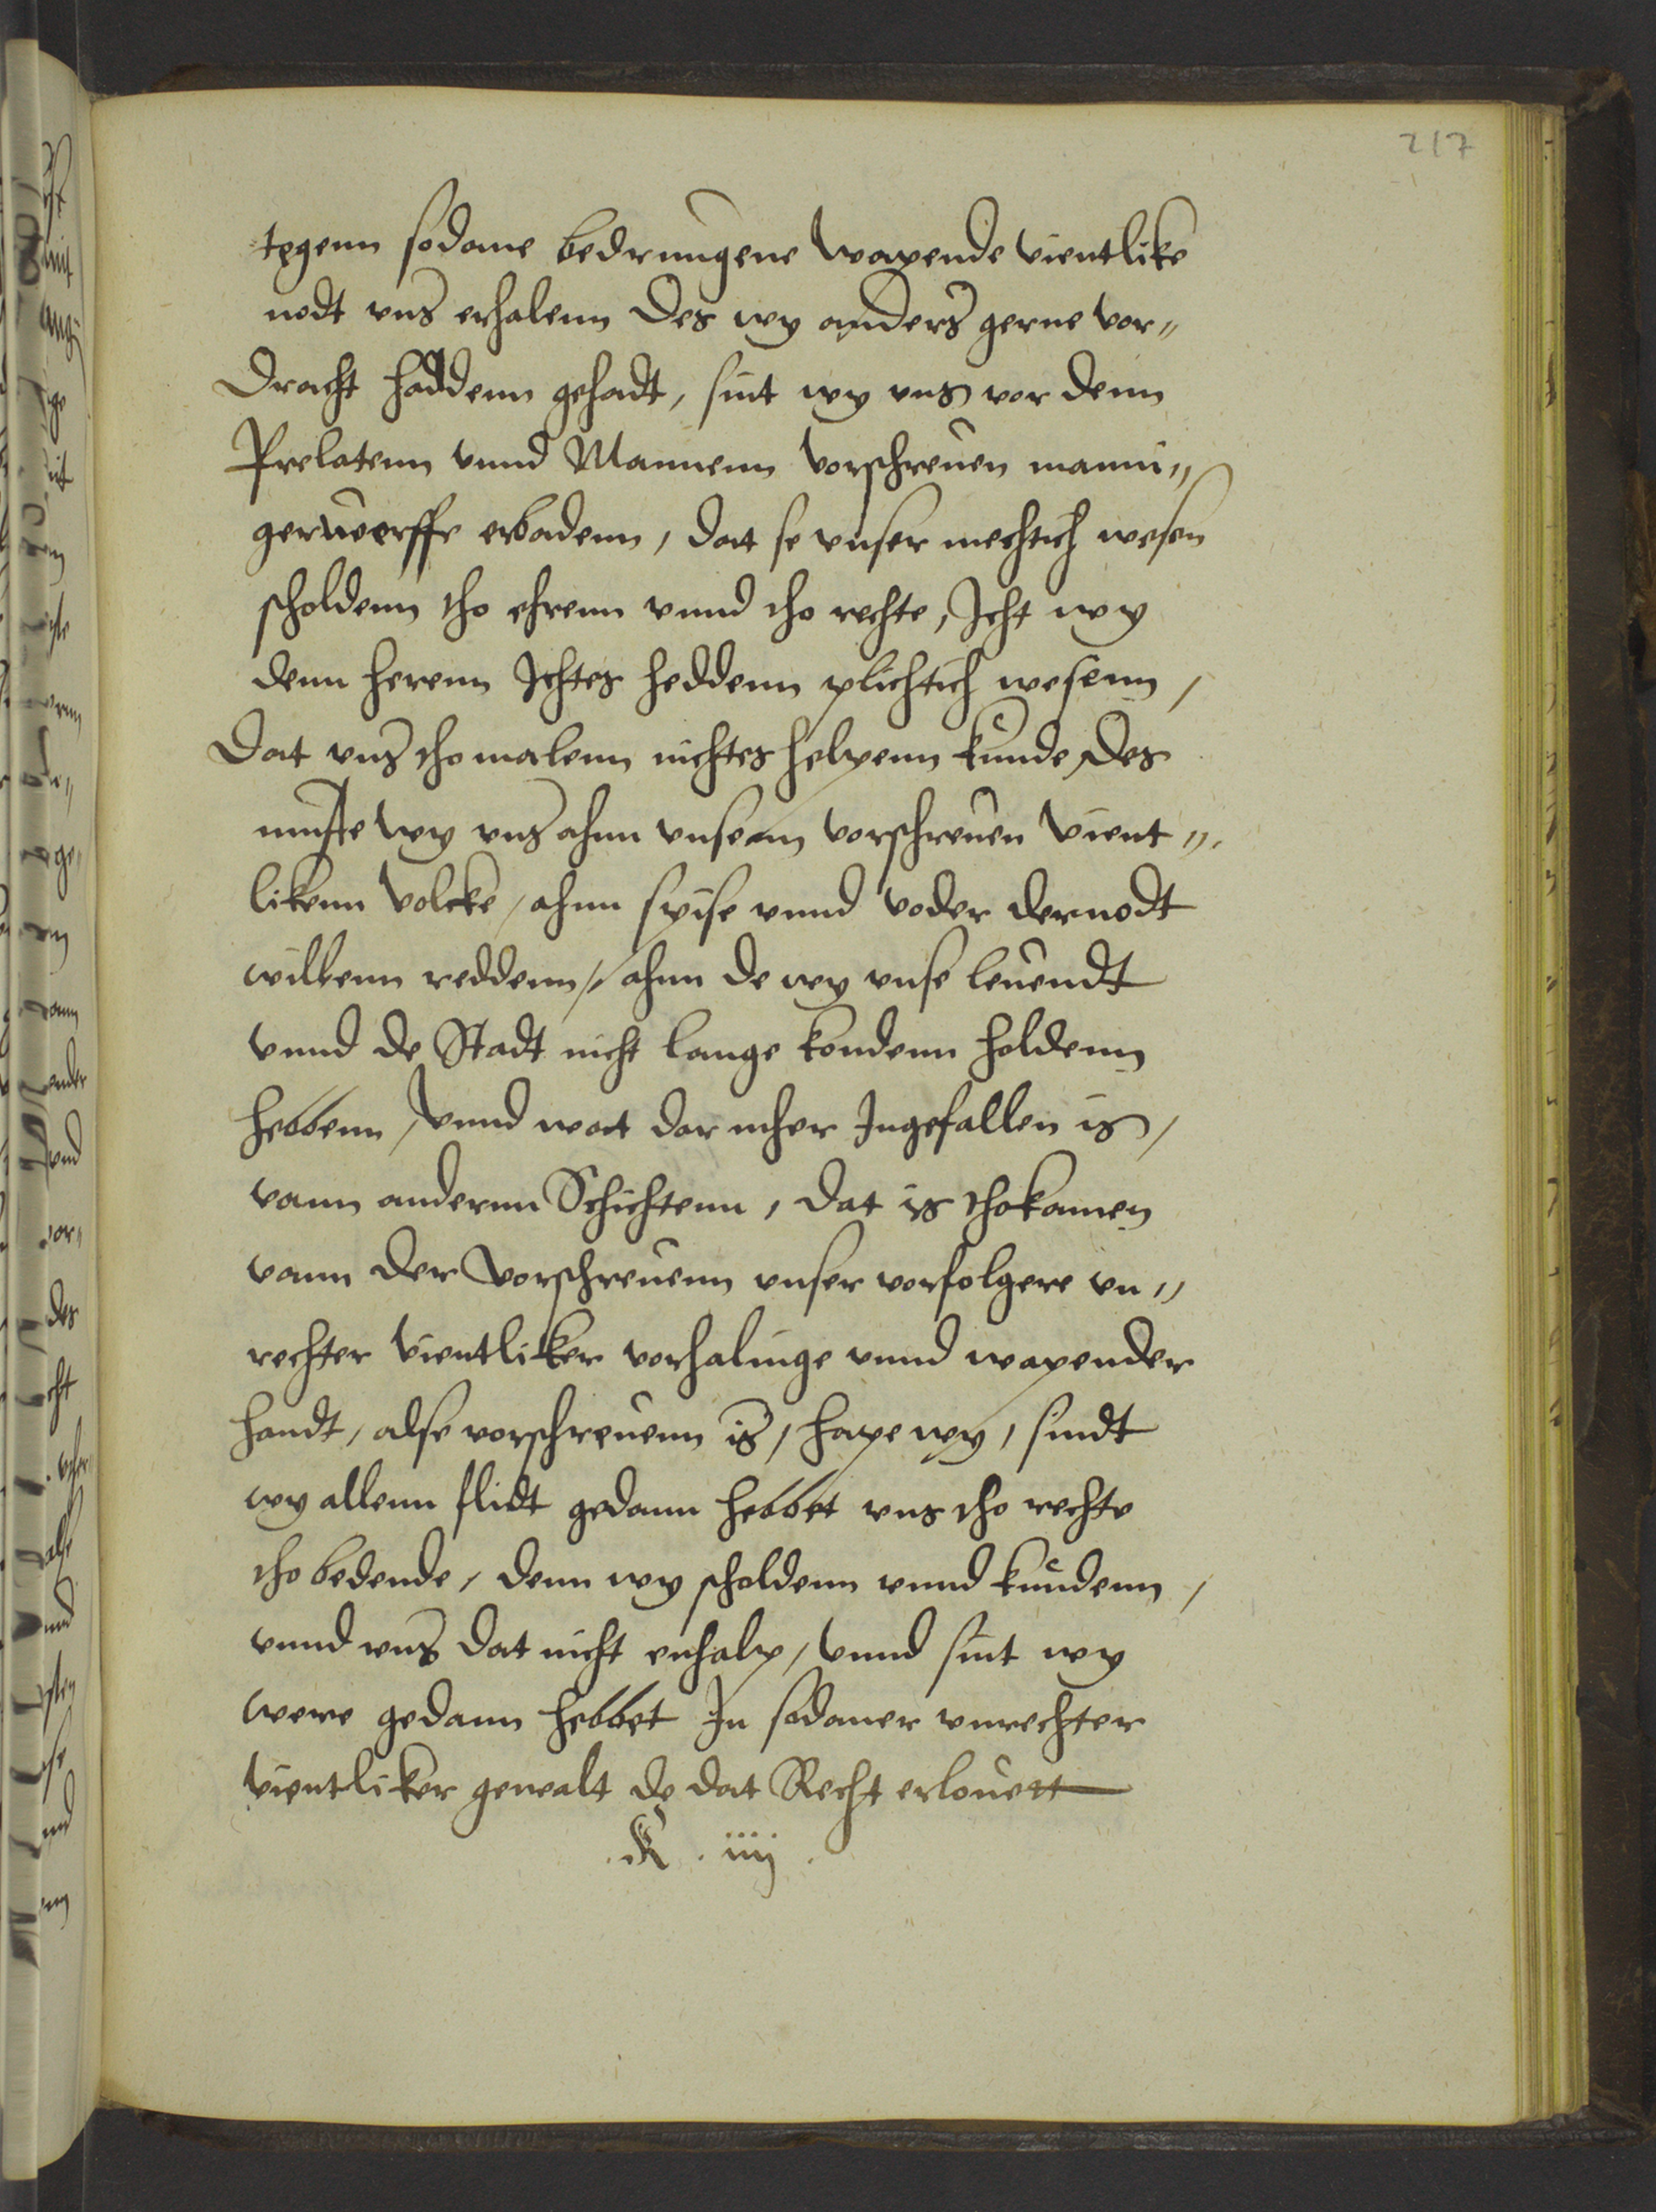 217
tegenn sodane bedrungene wapende vientlike
nodt vns erhalenn des wy anders gerne vor„
dracht haddenn gehadt, sint wy vns vor denn
Prelatenn vnnd Mannenn vorschreuen manni„
gerwerffe erbadenn, dat se vnser mechtich wesen
scholdenn tho ehrenn vnnd tho rechte, Icht wy
denn herenn Ichtes heddenn plichtich wesenn,
Dat vns tho malenn nichtes helpenn kunde, des
muste wy vns ahnn vnsenn vorschreuen vient„
likenn volcke, ahnn spise vnnd voder der nodt
willenn reddenn, ahnn de wy vnse leuendt
vnnd de Stadt nicht lange kondenn holdenn
hebbenn, vnnd wat dar mher Ingefallen is,
vann andernn Schichtenn, dat is thokamen
vann der vorschreuenn vnser vorfolgere vn„
rechter vientliker vorhalinge vnnd wapender
handt, alse vorschreuenn is, hape wy, sindt
wy allenn flidt gedann hebbet vns tho rechte
tho bedende, denn wy scholdenn vnnd kundenn,
vnnd vns dat nicht enhalp, vnnd sint wy
were gedann hebbet In sodaner vnrechter
vientliker gewalt de dat Recht erlouett
. K . iiij .